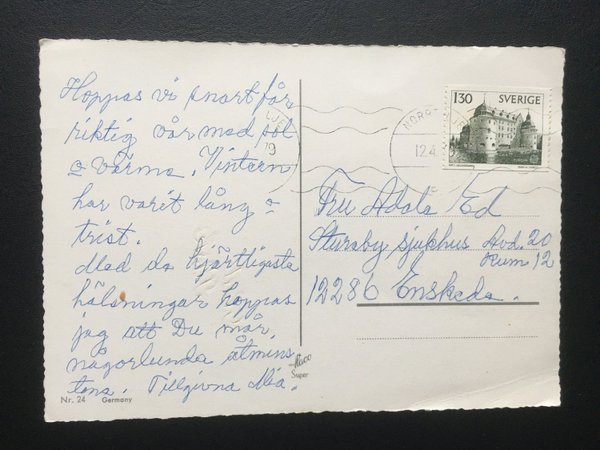 Hoppas vi snart får
riktig vår med sol
o värme. Vintern
har varit lång o
trist.
Med de hjärtligaste
hälsningar hoppas
jag att Du mår
någorlunda åtmins
tone. Tillgivna Mia.
Nr. 24 Germany
Super
130 SVERIGE
12.4
Fru Adele Ed
Stureby sjukhus Avd. 20
Rum 12
12286 Enskede.